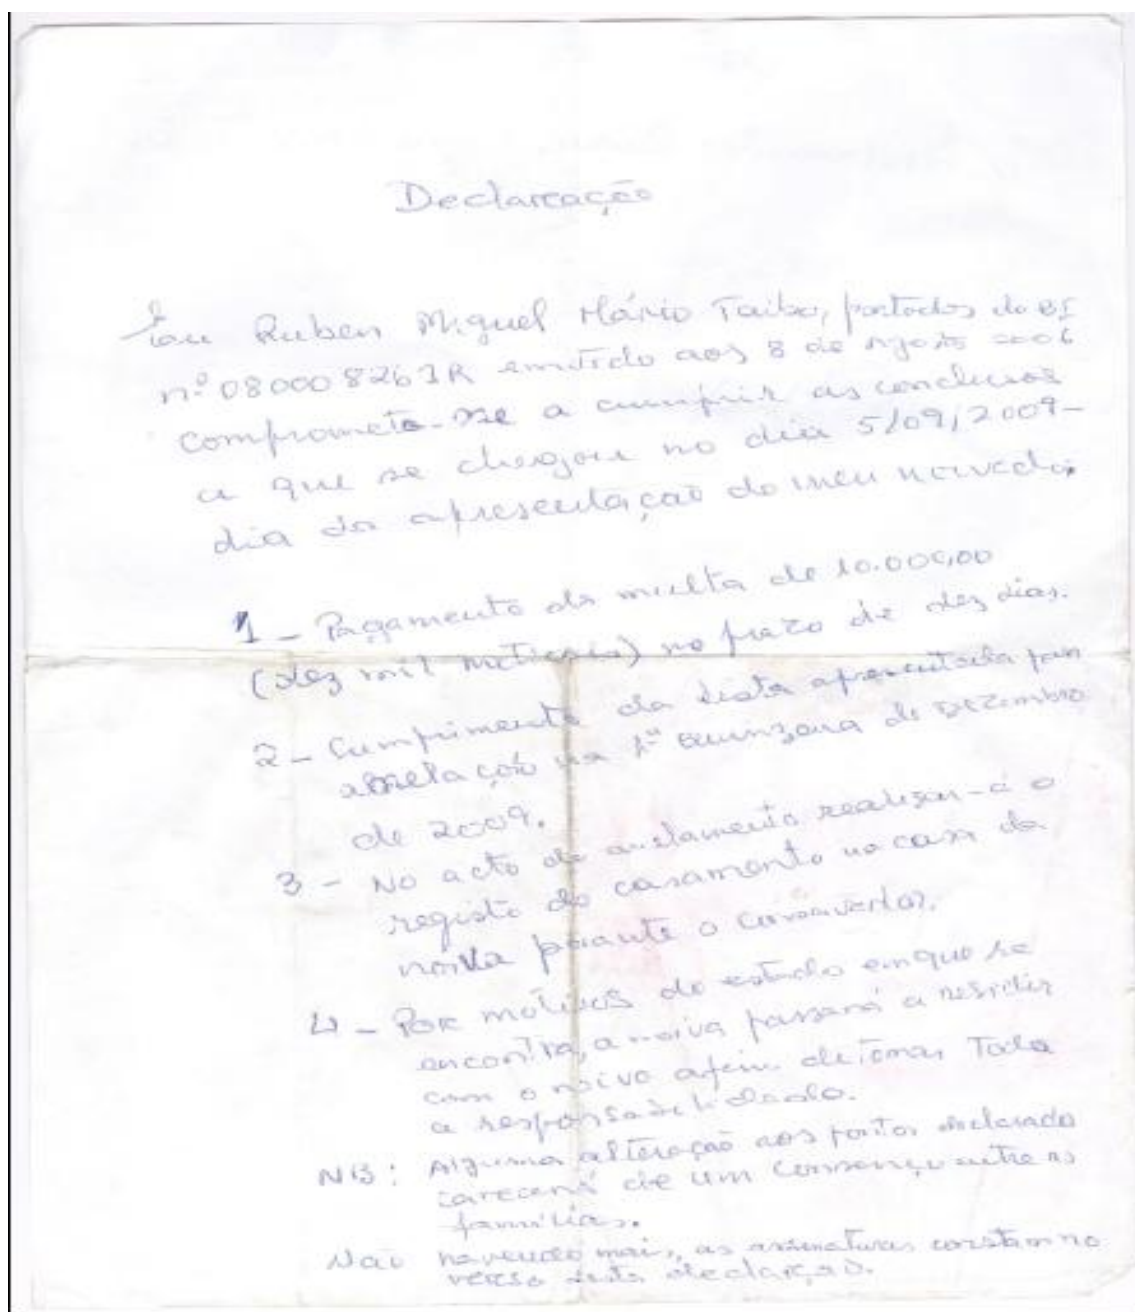 Declaração
Eu Ruben Miguel Mário Taibo, portador do BI
nº 080008263R emitido aos 8 de Agosto 2006
compromete-se a cumprir as conclusões
a que se chegou no dia 5/09/2009-
dia da apresentação do meu
1 - Pagamento da multa de 10.000,00
(dez mil meticais) no prazo de dez dias.
2 - Cumprimento da lista apresentada para
a 1ª Quinzena de Dezembro
de 2009.
3 - No acto do realizar-á o
registo do casamento na casa da
noiva perante o conservador.
4 - Por motivos do estado em que se
encontra, a noiva passará a residir
com o noivo afim de tomar Toda
a responsabilidade.
NB: Alguma alteração aos pontos declarado
carecerá de um consenço entre as
famílias.
Não havendo mais, as assinaturas constam no
verso desta declaração.